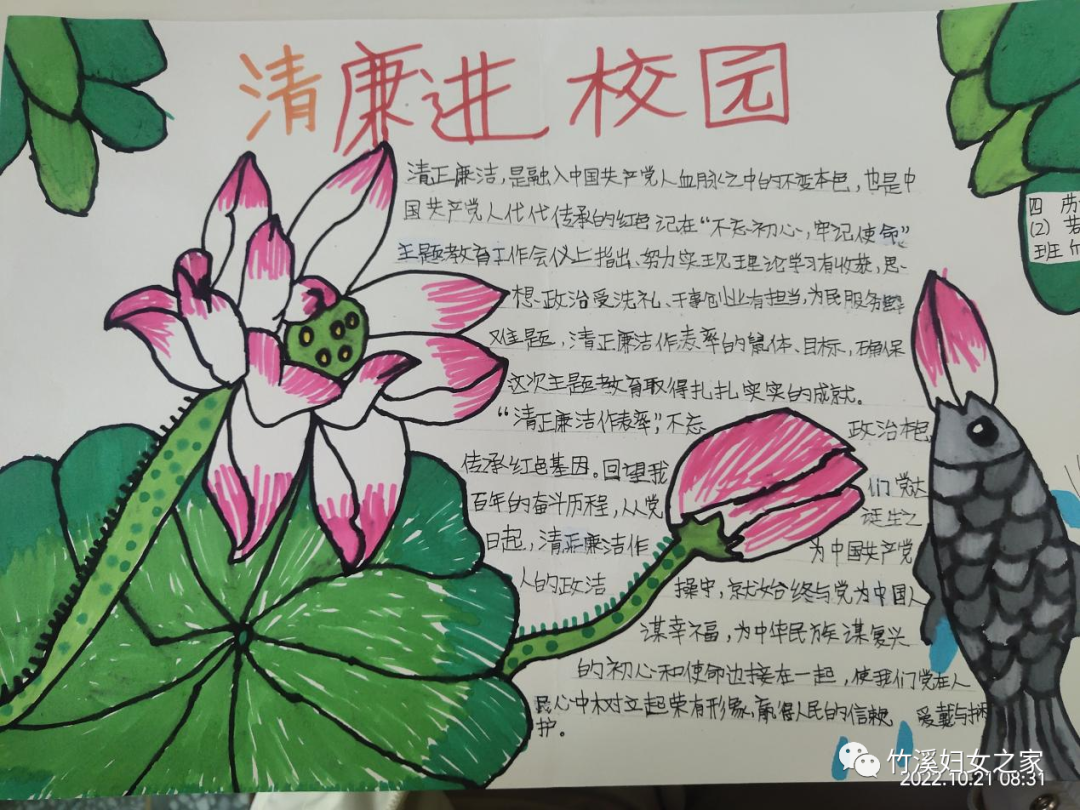 清廉进校园
清正廉洁，是融入中国共产党人血脉之中的不变本色，也是中
国共产党人代代传承的红色记在“不忘初心，牢记使命”
主题教育工作会仪上指出、努力实现理论学习有收获，思
想政治受洗礼、干事创业有担当，为民服务
难题，清正廉洁作表率的 体、目标，确保
这次主题教育取得扎扎实实的成就。
“清正廉洁作表率”，不忘 政治
传承红色基因。回望我 们党达
百年的奋斗历程，从党 诞生之
日起，清正廉洁作 为中国共产党
人的政洁 操中，就始终与党为中国人
谋幸福，为中华民族谋复兴
的初心和使命边接在一起，使我们党在人
民心中树立起荣有形象，赢得人民的信赖 爱戴与拥
护。
四
(2) 若
班
竹溪妇女之家
2022.10.21 08:31